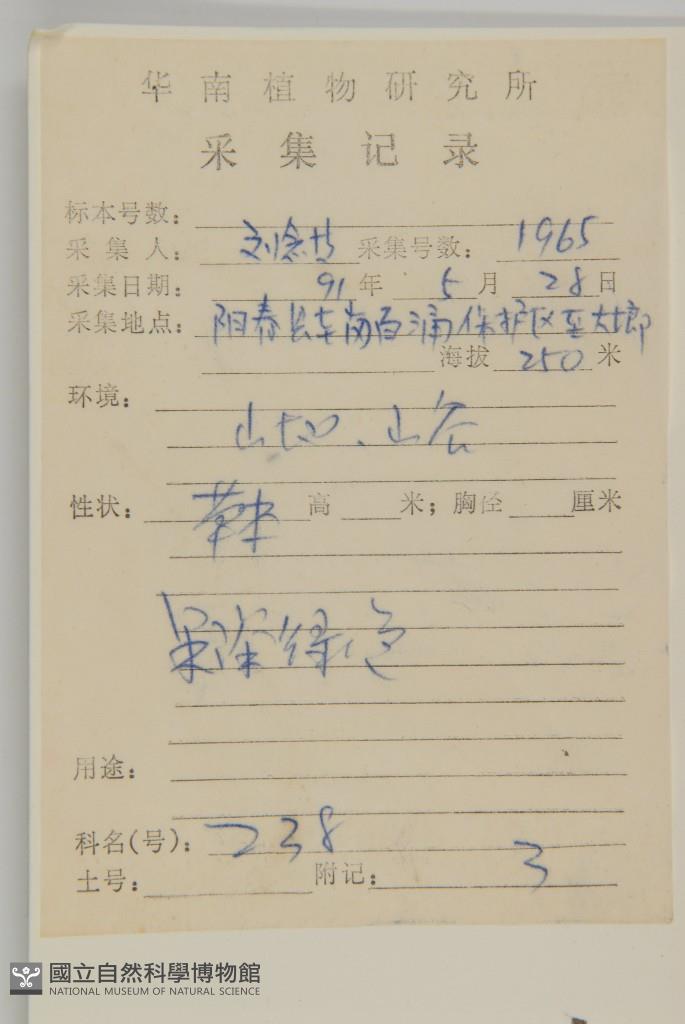 华南植物研究所
采集记录
标本号数：
采集人： 刘念 采集号数： 1965
采集日期： 91年 5月 28日
采集地点： 阳春县 百涌保护区至大郎
海拔 250 米
环境：
山坡、山谷
性状： 草本 高 米；胸径 厘米
果深绿色
用途：
科名(号)： 238
土号： 附记： 3
國立自然科學博物館
NATIONAL MUSEUM OF NATURAL SCIENCE